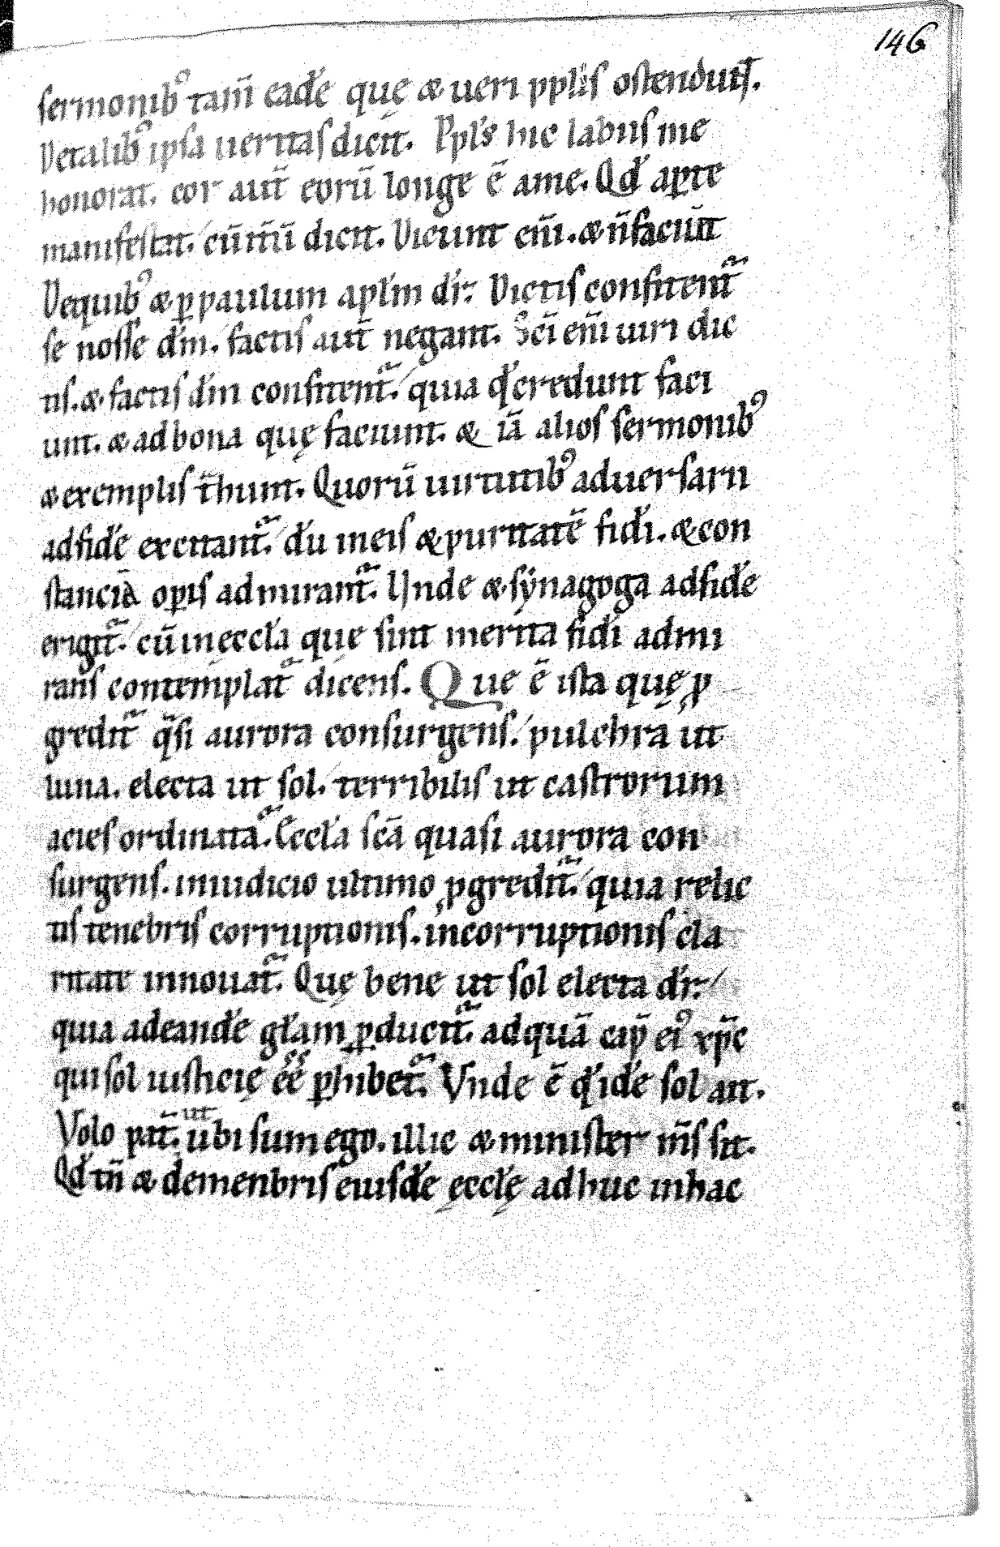 146
sermonib᾽ tam̄ eadē que & ueri ppl̄is ostendunt᷒.
Detalib᾽ ipsa ueritas dicit. Ppl̄s hic labiis me
honorat. cor aut̄ eorū longe ē ame. Qđ ap̲te
manifestat. cū itū dicit. Dicunt eni̅. & n̄ faciunt
Dequib᾽ & p̲ paulum apl̄m dr̄: Dictis confitent᷒
se nosse dm̄. factis aut̄ negant. Sc̄i eni̅ uiri dic
tis. & factis dm̄ confitent᷒. quia qđ credunt faci
unt. & ad bona quę faciunt. & iā alios sermonib᾽
& exemplis t̄hunt. Quorū uirtutib᾽ aduersarii
adfidē excitant᷒. dū in eis & puritatē fidi̅. & con
stanciā op̲is admirant᷒. Unde & synagoga adfidē
erigit᷒. cū ineccl̄a que sint merita fidi̅ admi
rans contemplat᷒ dicens. Que ē ista quę p
gredit᷒ q̄si aurora consurgens. pulchra ut
luna. electa ut sol. terribilis ut castrorum
acies ordinata᷒. Eccl̄a sc̄a quasi aurora con
surgens. iniudicio ultimo pgredit᷒. quia relic
tis tenebris corruptionis. incorruptionis cla
ritate innouat᷒. Quę bene ut sol electa dr̄:
quia adeandē gl̄am p̲ducit᷒. adquā cap̄ ei᾽ xp̄c
qui sol iusticię eē p̲hibet᷒. Vnde ē qđ idē sol ait.
Volo pat̄. ut ubi sum ego. illic & minister m̄s sit.
Qđ tn̄ & demenbris eiusdē ęccl̄ę adhuc inhac